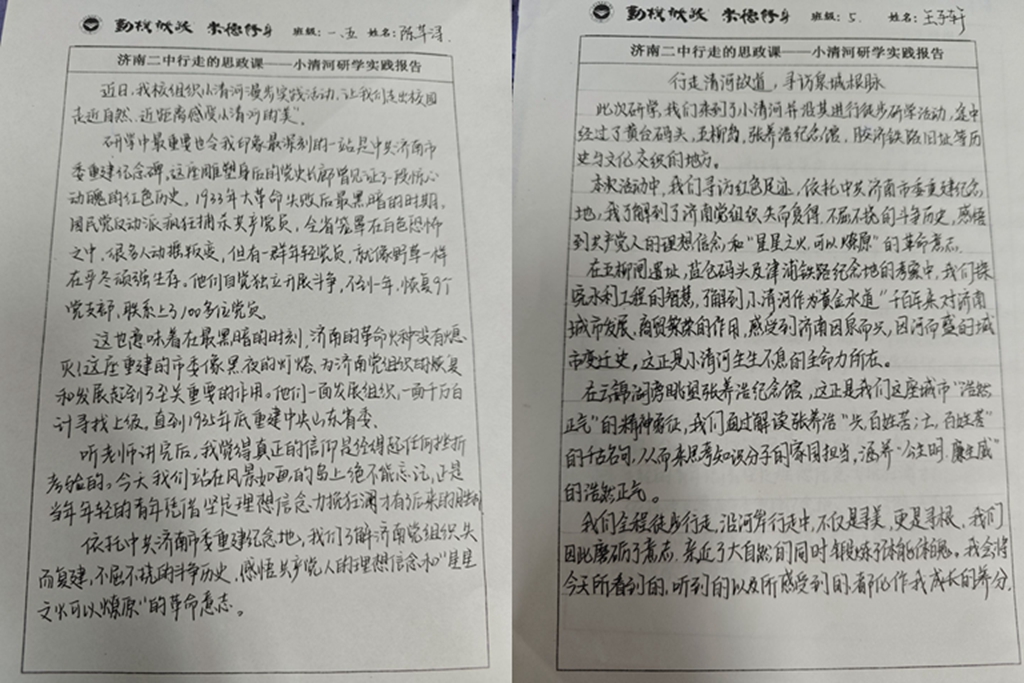 勤朴敏毅 崇德修身 班级：一.五 姓名：陈苹泽
济南二中行走的思政课——小清河研学实践报告
近日，我校组织小清河漫步实践活动，让我们走出校园
走近自然、近距离感受小清河的美"。
研学中最重要也令我印象最深刻的一站是中共济南市
委重建纪念碑，这座雕塑身后的党史长廊曾见证了一段惊心
动魄的红色历史。1933年大革命失败后最黑暗的时期，
国民党反动派疯狂捕杀共产党员，全省笼罩在白色恐怖
之中，很多人动摇叛变，但有一群年轻党员，就像野草一样
在严冬顽强生存。他们自觉独立开展斗争，不到一年，恢复9个
党支部，联系上了100多位党员
这也意味着在最黑暗的时刻，济南的革命火种没有熄
灭！这座重建的市委像黑夜的灯塔，为济南党组织的恢复
和发展起到了至关重要的作用。他们一面发展组织，一面千方百
计寻找上级，直到1935年底重建中共山东省委.
听老师讲完后，我觉得真正的信仰是经得起任何挫折
考验的。今天我们站在风景如画的岛上绝不能忘记，正是
当年年轻的青年凭借坚定理想信念力挽狂澜才有了后来的胜利
依托中共济南市委重建纪念地，我们了解济南党组织失
而复建，不屈不挠的斗争历史，感悟共产党人的理想信念和"星星
之火可以燎原"的革命意志。
勤朴敏毅 崇德修身 班级：5. 姓名：王子轩
济南二中行走的思政课——小清河研学实践报告
行走清河故道，寻访泉城根脉
此次研学，我们来到了小清河并沿其进行徒步研学活动，途中
经过了黄台码头，五柳岛，张养浩纪念馆，胶济铁路旧址等历
史与文化交织的地方。
本次活动中，我们寻访红色足迹，依托中共济南市委重建纪念
地，我了解到了济南党组织失而复得，不屈不挠的斗争历史，感悟
到共产党人的理想信念，和"星星之火，可以燎原"的革命意志.
在五柳闸遗址，盐仓码头及津浦铁路纪念地的考察中，我们探
究水利工程的智慧，了解到小清河作为"黄金水道"千百年来对济南
城市发展、商贸繁荣的作用，感受到济南因泉而兴，因河而盛的城
市变迁史，这正是小清河生生不息的生命力所在。
在五锦湖旁眺望张养浩纪念馆，这正是我们这座城市"浩然
正气"的精神象征，我们通过解读张养浩"兴，百姓苦；亡，百姓苦"
的千古名句，从而来思考知识分子的家国担当，涵养"公生明.廉生威"
的浩然正气。
我们全程徒步行走，沿河岸行走中，不仅是寻美，更是寻根，我们
因此磨砺了意志，亲近了大自然的同时锻炼了体能体魄。我会将
今天所看到的，听到的以及所感受到的都化作我成长的养分.